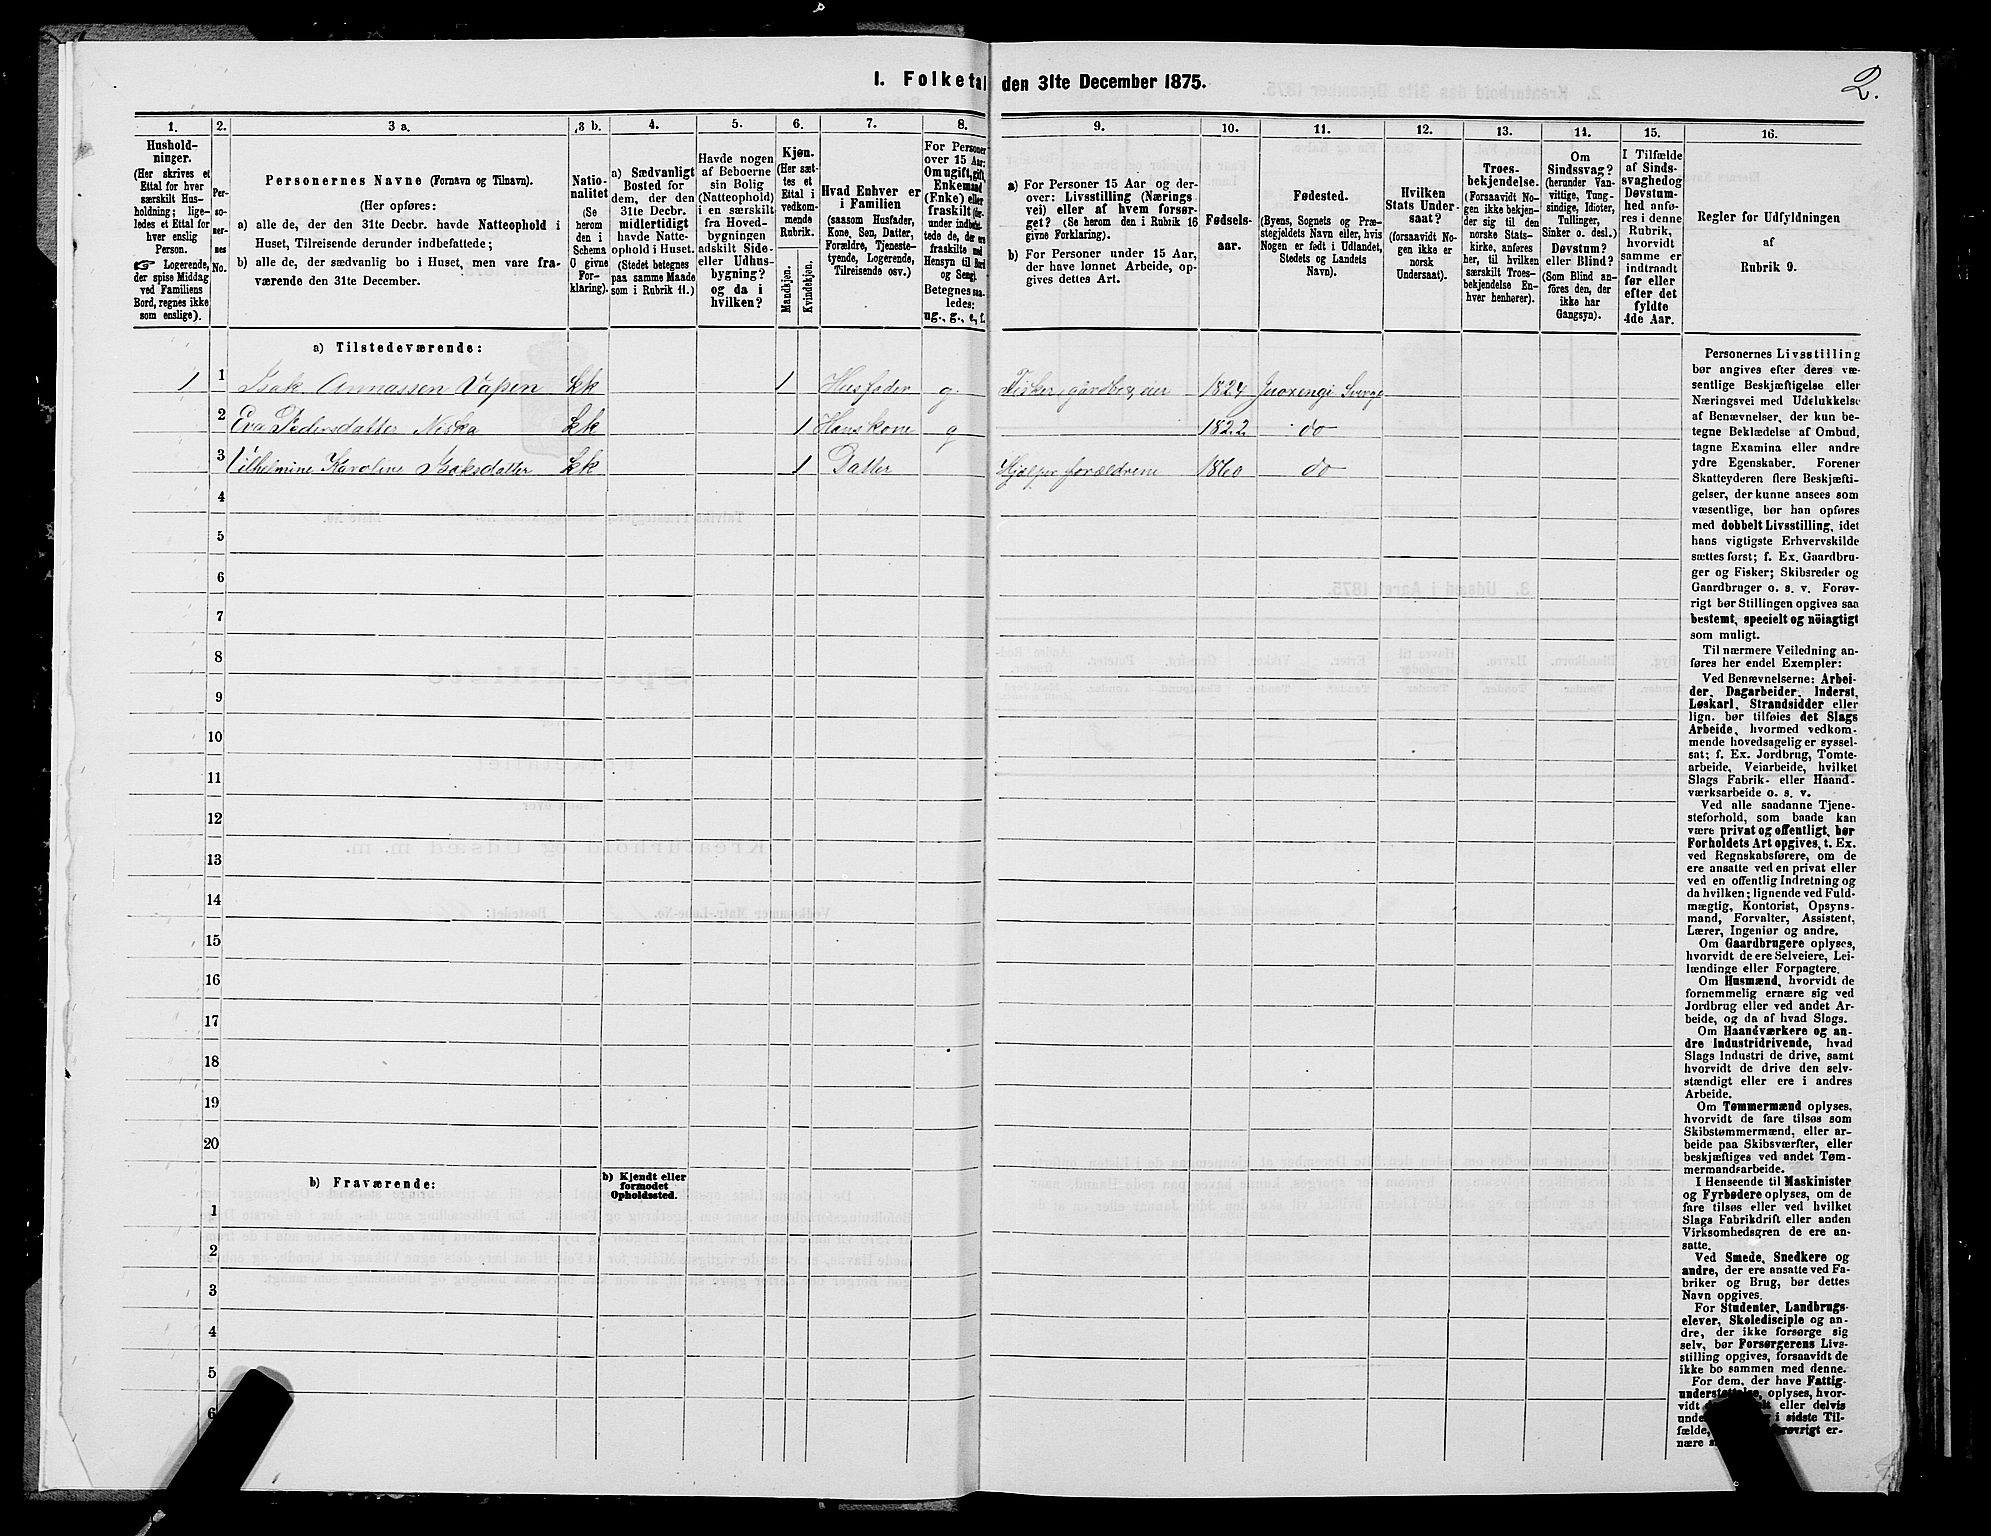 I. Folketal den 31te December 1875.
2.
1.
Hushold-
ninger.
(Her skrives et
Ettal for hver
særskilt Hus-
holdning; lige-
ledes et Ettal for
hver enslig
Person.
☞ Logerende,
der spise Middag
ved Familiens
Bord, regnes ikke
som enslige).
2.
Per-
so-
ner-
nes
No.
3 a.
Personernes Navne (Fornavn og Tilnavn).
(Her opføres:
a) alle de, der den 31te Decbr. havde Natteophold i
Huset, Tilreisende derunder indbefattede;
b) alle de, der sædvanlig bo i Huset, men vare fra-
værende den 31te December.
3 b.
Natio-
nalitet
(Se
herom
den i
Schema
O givne
For-
klaring).
4.
a) Sædvanligt
Bosted for
dem, der den
31te Decbr.
midlertidigt
havde Natte-
ophold i Huset.
(Stedet betegnes
paa samme Maade
som i Rubrik 11.)
5.
Havde nogen
af Beboerne
sin Bolig
(Natteophold)
i en særskilt
fra Hoved-
bygningen
adskilt Side-
eller Udhus-
bygning?
og da i
hvilken?
6.
Kjøn.
(Her sæt-
tes et
Ettal i
vedkom-
mende
Rubrik.
Mandkjøn.
Kvindekjøn.
7.
Hvad Enhver er
i Familien
(saasom Husfader,
Kone, Søn, Datter,
Forældre, Tjeneste-
tyende, Logerende,
Tilreisende osv.)
8.
For Personer
over 15 Aar:
Om ugift, gift,
Enkemand
(Enke) eller
fraskilt
Betegnes saa-
ledes:
ug., g., e., f.
9.
a) For Personer 15 Aar og der-
over: Livsstilling (Nærings
vei) eller af hvem forsør-
get? (Se herom den i Rubrik 16
givne Forklaring).
b) For Personer under 15 Aar,
der have lønnet Arbeide, op-
gives dettes Art.
10.
Fødsels-
aar.
11.
Fødested.
(Byens, Sognets og Præ-
stegjeldets Navn eller, hvis
Nogen er født i Udlandet,
Stedets og Landets
Navn).
12.
Hvilken
Stats Under-
saat?
(forsaavidt No-
gen ikke er
norsk
Undersaat).
13.
Troes-
bekjendelse.
(Forsaavidt No-
gen ikke bekjen-
der sig til den
norske Stats-
kirke, anføres
her, til hvilken
særskilt Troes-
bekjendelse En-
hver henhører).
14.
Om
Sindssvag?
(herunder Van-
vittige, Tung-
sindige, Idioter,
Tullinger,
Sinker o. desl.)
Døvstum?
eller Blind?
(Som Blind an-
føres den, der
ikke har
Gangsyn).
15.
I Tilfælde
af Sinds-
svaghed og
Døvstum-
hed anfø-
res i denne
Rubrik,
hvorvidt
samme er
indtraadt
før eller
efter det
fyldte
4de Aar.
16.
Regler for Udfyldningen
af
Rubrik 9.
a) Tilstedeværende:
1 1 Isak Annassen Vassen Lk 1 Husfader g Fisker, gårdbr, eier 1824 Juorengi Sverge
2 Eva Pedersdatter Niska Lk 1 Hanskone g 1822 do
3 Vilhelmine Karoline Isaksdatter Lk 1 Datter Hjælper forældrene 1860 do
4
5
6
7
8
9
10
11
12
13
14
15
16
17
18
19
20
b) Fraværende:
b) Kjendt eller
formodet
Opholdssted.
1
2
3
4
5
6
Personernes Livsstilling
bør angives efter deres væ-
sentlige Beskjæftigelse eller
Næringsvei med Udelukkelse
af Benævnelser, der kun be-
tegne Beklædelse af Ombud,
tagne Examina eller andre
ydre Egenskaber. Forener
Skatteyderen flere Beskjæfti-
gelser, der kunne ansees som
væsentlige, bør han opføres
med dobbelt Livsstilling, idet
hans vigtigste Erhvervskilde
sættes først; f. Ex. Gaardbru-
ger og Fisker; Skibsreder og
Gaardbruger o. s. v. Forøv-
rigt bør Stillingen opgives saa
bestemt, specielt og nöiagtigt
som muligt.
Til nærmere Veiledning an-
føres her endel Exempler:
Ved Benævnelserne: Arbei-
der, Dagarbeider, Inderst,
Løskarl, Strandsidder eller
lign. bør tilføies det Slags
Arbeide, hvormed vedkom-
mende hovedsagelig er syssel-
sat; f. Ex. Jordbrug, Tomte-
arbeide, Veiarbeide, hvilket
Slags Fabrik- eller Haand-
værksarbeide o. s. v.
Ved alle saadanne Tjene-
steforhold, som baade kan
være privat og offentligt, bør
Forholdets Art opgives, t. Ex.
ved Regnskabsførere, om de
ere ansatte ved en privat eller
ved en offentlig Indretning og
da hvilken; lignende ved Fuld-
mægtig, Kontorist, Opsyns-
mand, Forvalter, Assistent,
Lærer, Ingeniør og andre.
Om Gaardbrugere oplyses,
hvorvidt de ere Selveiere, Lei-
lændinge eller Forpagtere.
Om Husmænd, hvorvidt de
fornemmelig ernære sig ved
Jordbrug eller ved andet Ar-
beide, og da af hvad Slags.
Om Haandværkere og an-
dre Industridrivende, hvad
Slags Industri de drive, samt
hvorvidt de drive den selv-
stændigt eller ere i andres
Arbeide.
Om Tømmermænd oplyses,
hvorvidt de fare tilsøs som
Skibstømmermænd, eller ar-
beide paa Skibsværfter, eller
beskjæftiges ved andet Tøm-
mermandsarbeide.
I Henseende til Maskinister
og Fyrbødere oplyses, om de
fare tilsøs eller ved hvilket
Slags Fabrikdrift eller anden
Virksomhedsgren de ere an-
satte.
Ved Smede, Snedkere og
andre, der ere ansatte ved Fa-
briker og Brug, bør dettes
Navn opgives.
For Studenter, Landbrugs-
elever, Skoledisciple og an-
dre, der ikke forsørge sig
selv, bør Forsørgerens Livs-
stilling opgives, forsaavidt de
ikke bo sammen med denne.
For dem, der have Fattig-
understøttelse, oplyses, hvor-
vidt eller delvis
i sidste Til-
fælde, er-
nære